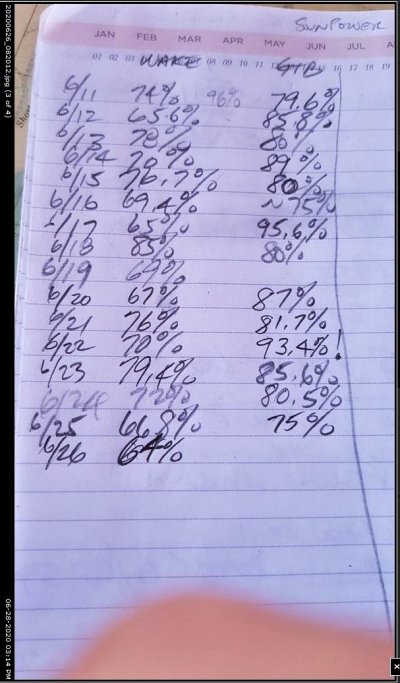 SUNPOWER
JAN FEB MAR APR MAY JUN JUL
WAKE GTB
6/11 74% 96% 79.6%
6/12 65.6% 85.8%
6/13 70% 80%
6/14 70% 89%
6/15 76.7% 80%
6/16 69.4% ~75%
6/17 65% 95.6%
6/18 85% 80%
6/19 69%
6/20 67% 87%
6/21 76% 81.7%
6/22 70% 93.4%!
6/23 79.4% 85.6%
6/24 72% 80.5%
6/25 66.8% 75%
6/26 64%
20200626_082012.jpg (3 of 4)
06-28-2020 03:14 PM